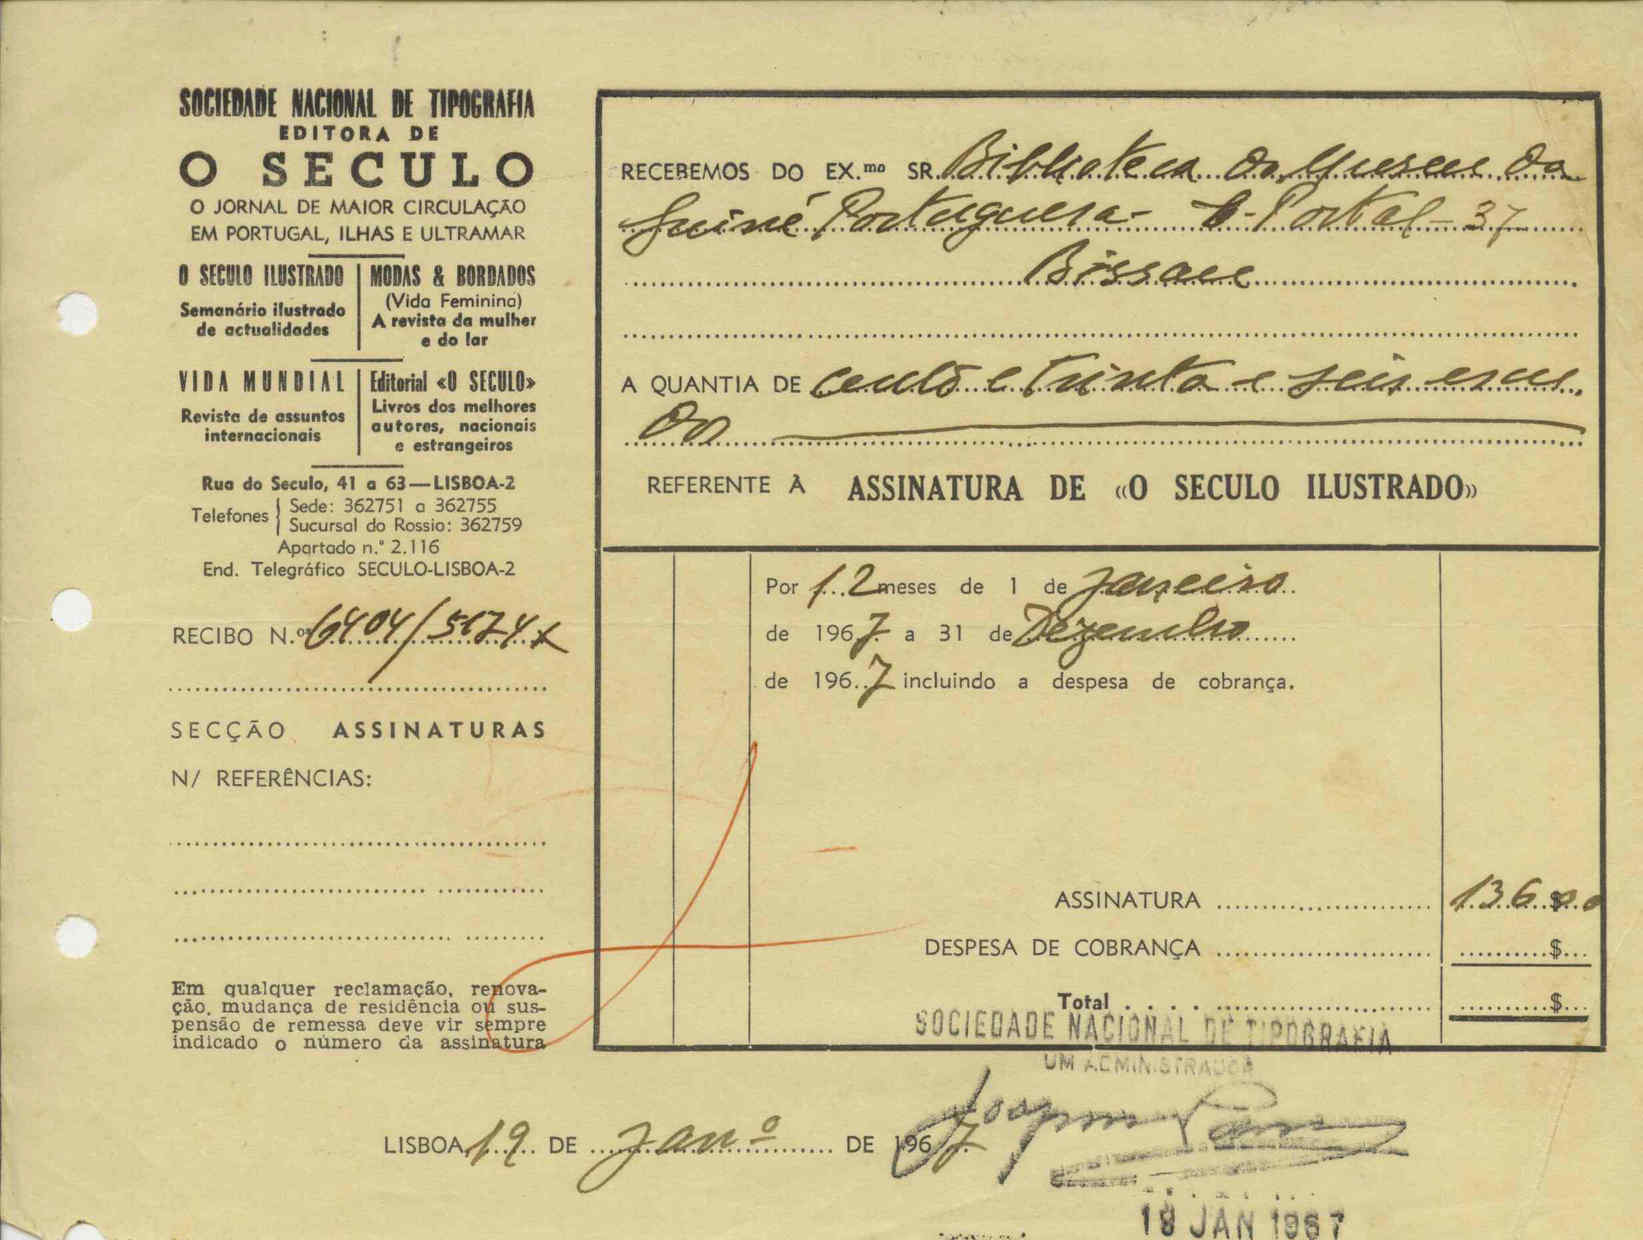 SOCIEDADE NACIONAL DE TIPOGRAFIA
EDITORA DE
O SECULO
O JORNAL DE MAIOR CIRCULAÇÃO
EM PORTUGAL, ILHAS E ULTRAMAR
O SECULO ILUSTRADO
Semanário ilustrado
de actualidades
MODAS & BORDADOS
(Vida Feminina)
A revista da mulher
e do lar
VIDA MUNDIAL
Revista de assuntos
internacionais
Editorial «O SECULO»
Livros dos melhores
autores, nacionais
e estrangeiros
Rua do Seculo, 41 a 63—LISBOA-2
Telefones { Sede: 362751 a 362755
Sucursal do Rossio: 362759
Apartado n.º 2.116
End. Telegráfico SECULO-LISBOA-2
RECIBO N.º 6404/5674
SECÇÃO ASSINATURAS
N/ REFERÊNCIAS:
Em qualquer reclamação, renova-
ção, mudança de residência ou sus-
pensão de remessa deve vir sempre
indicado o número da assinatura
RECEBEMOS DO EX.mo SR. Biblioteca do Museu da
Guiné Portuguesa - C. Postal - 37
Bissau
A QUANTIA DE cento e trinta e seis escu
do
REFERENTE À ASSINATURA DE «O SECULO ILUSTRADO»
Por 12 meses de 1 de Janeiro
de 1967 a 31 de Dezembro
de 1967 incluindo a despesa de cobrança.
ASSINATURA 136$00
DESPESA DE COBRANÇA $
Total $
SOCIEDADE NACIONAL DE TIPOGRAFIA
UM ADMINISTRADOR
LISBOA, 19 DE Janº DE 1967
19 JAN 1967